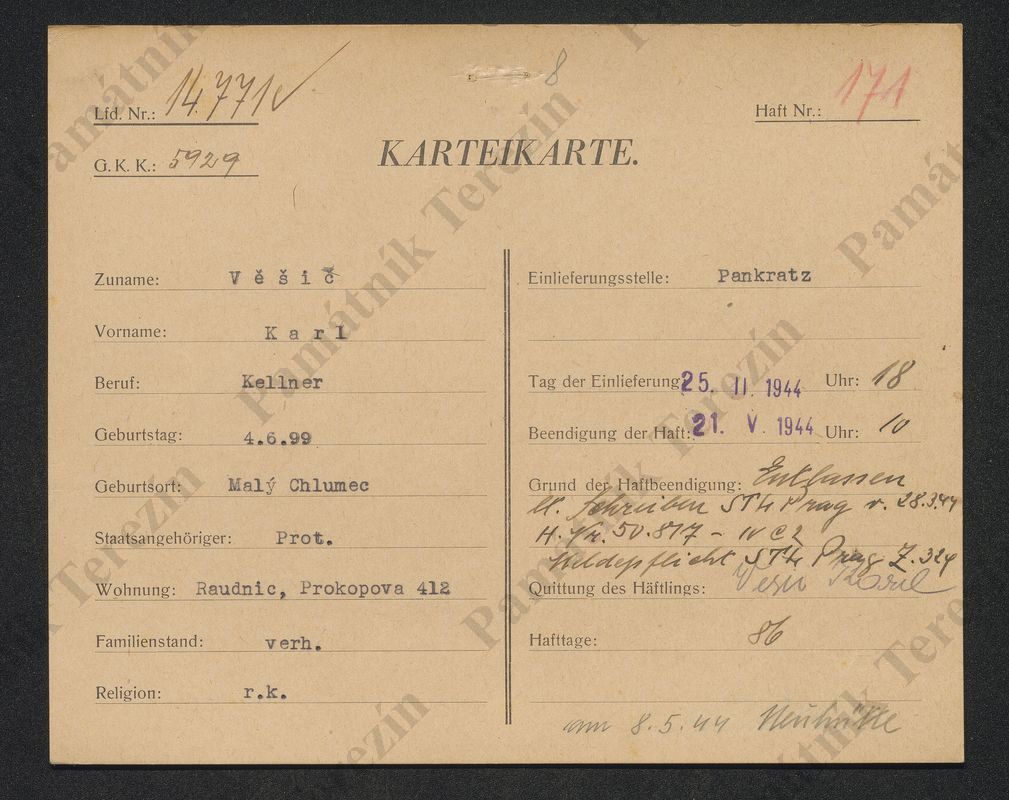 Lfd. Nr.: 14.771
8
Haft Nr.: 171
G. K. K.: 5929
KARTEIKARTE.
Zuname: Věšič
Vorname: Karl
Beruf: Kellner
Geburtstag: 4.6.99
Geburtsort: Malý Chlumec
Staatsangehöriger: Prot.
Wohnung: Raudnic, Prokopova 412
Familienstand: verh.
Religion: r.k.
Einlieferungsstelle: Pankratz
Tag der Einlieferung: 25. II. 1944 Uhr: 18
Beendigung der Haft: 21. V. 1944 Uhr: 10
Grund der Haftbeendigung: Entlassen
lt. Schreiben STL Prag v. 28.3.44
H. Nr. 50.817 - IV C2
Meldepflicht STL Prag Z. 324
Quittung des Häftlings: Karel
Hafttage: 86
am 8.5.44 Neuhütte
Památník Terezín